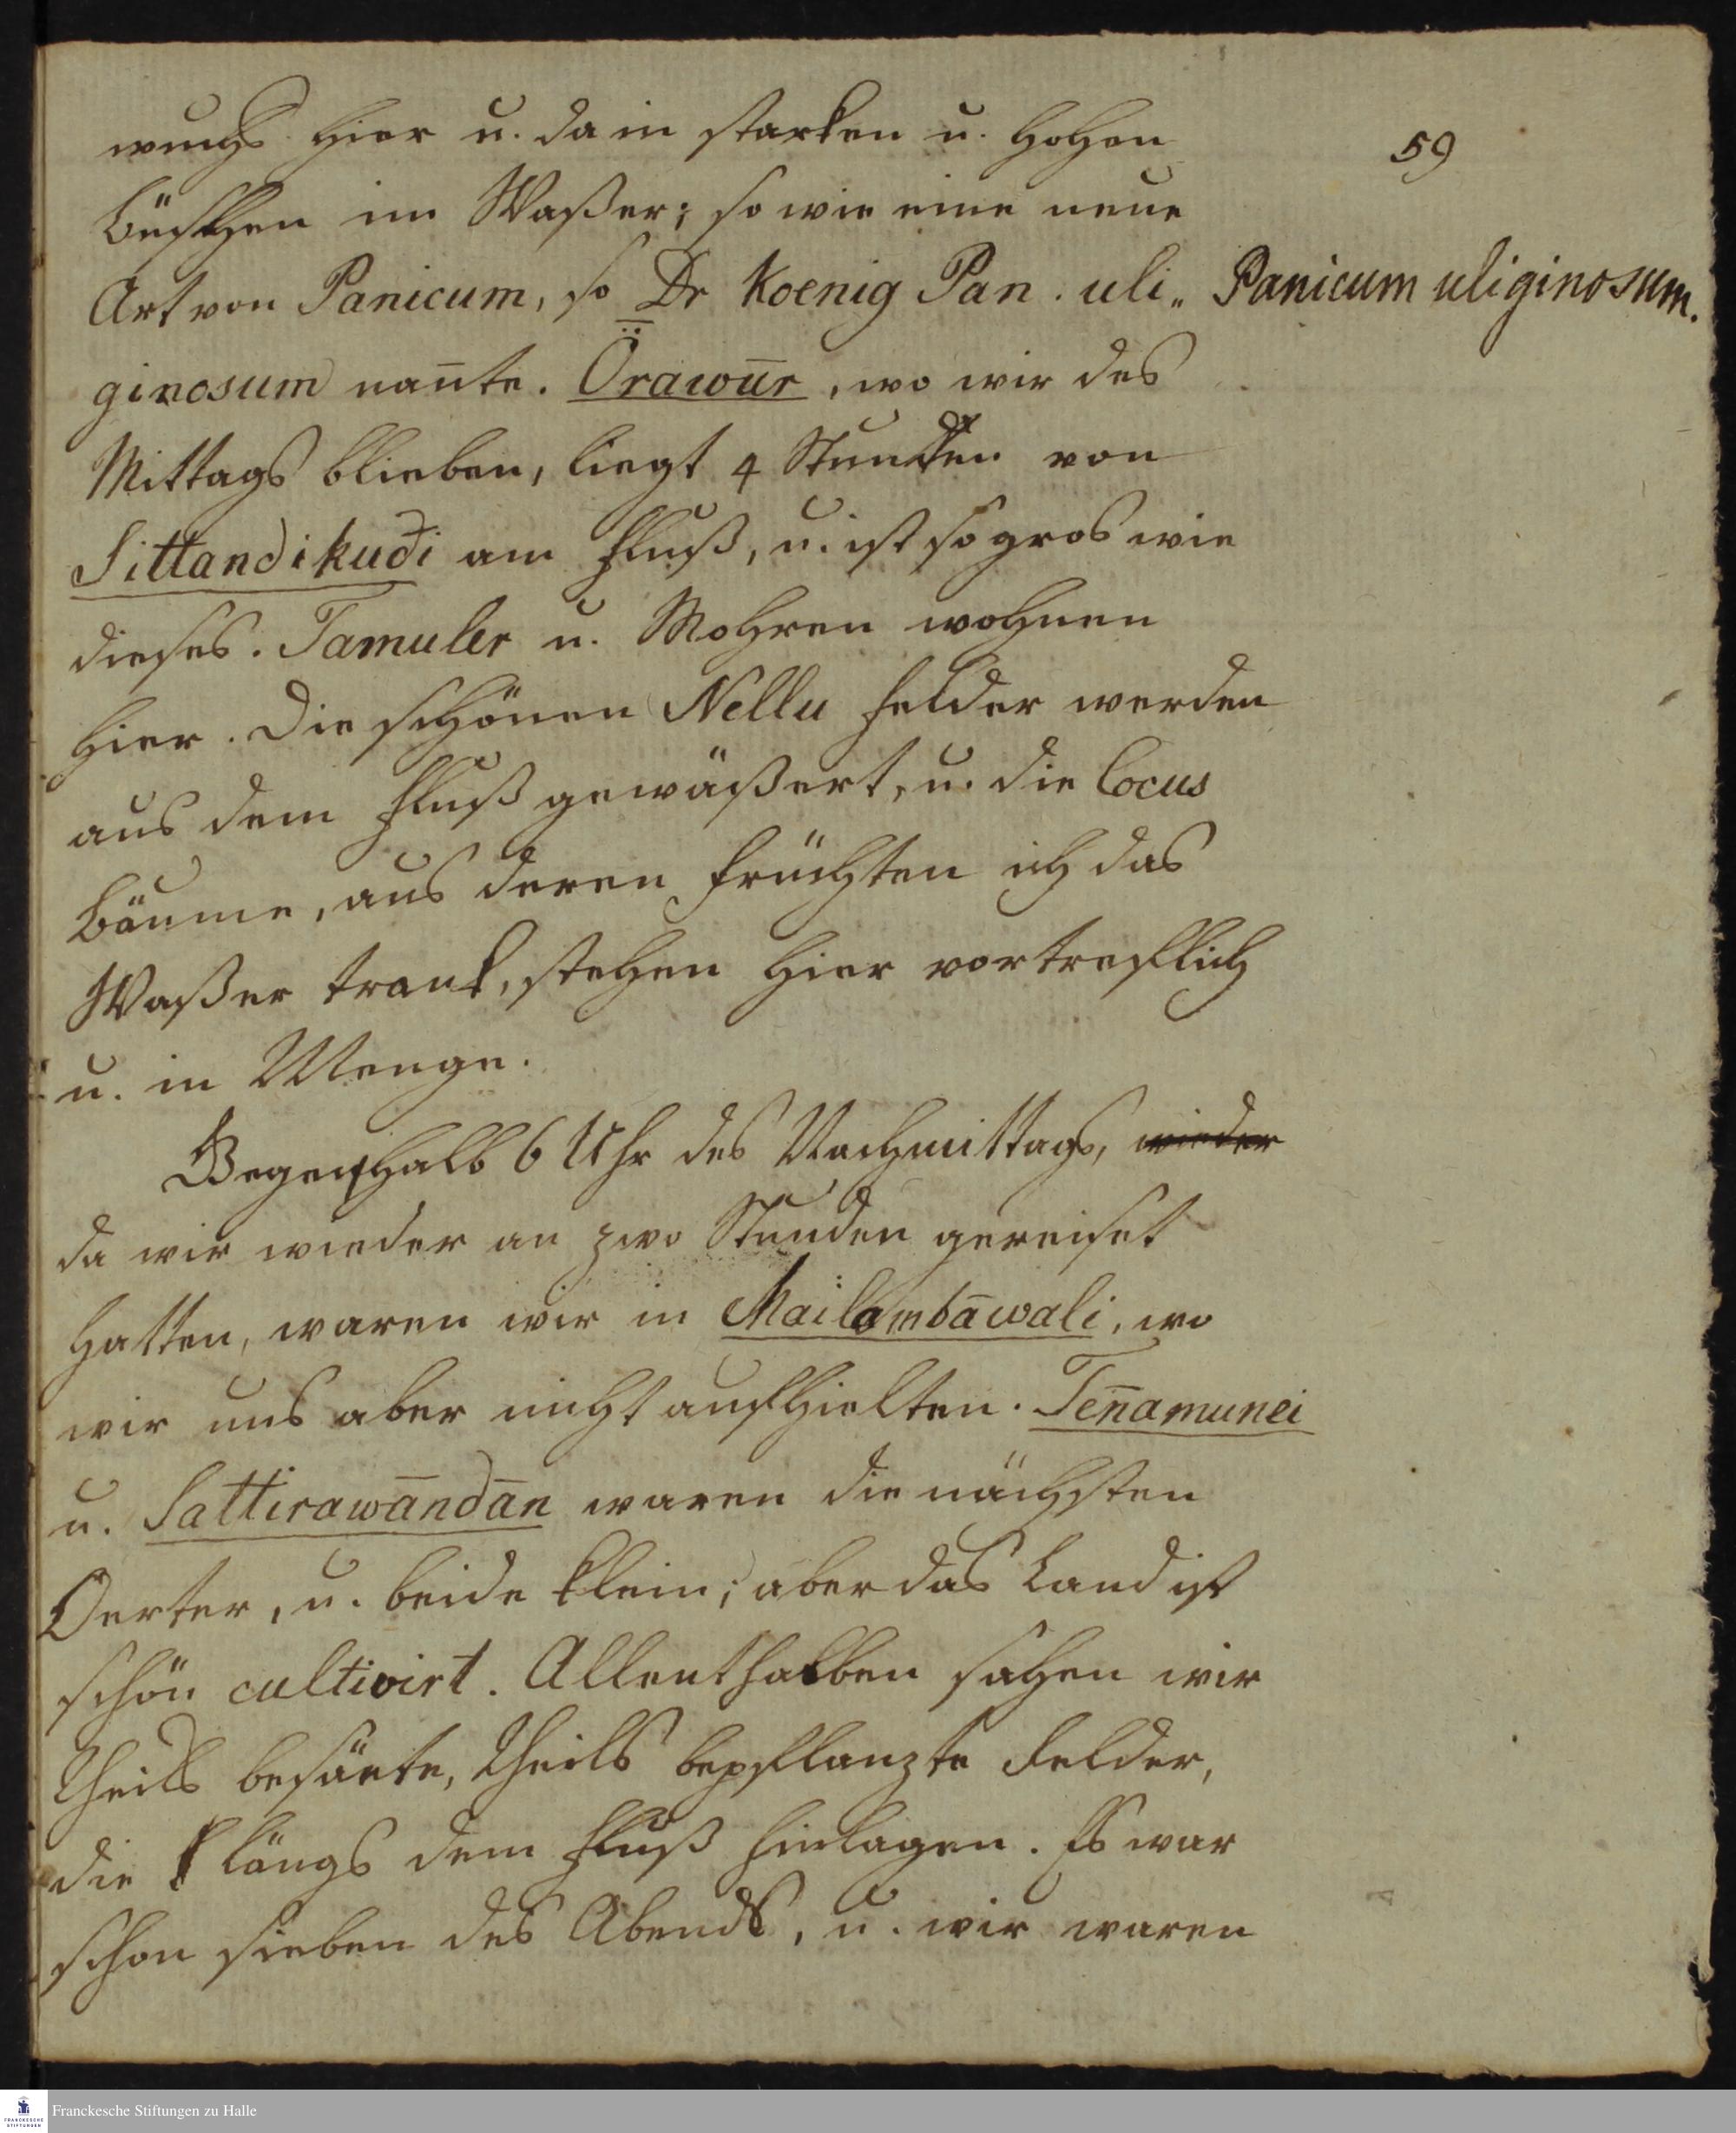 59
wuchs hier u. da in starken u. hohen
Büschen im Waßer; so wie eine neue
Art von Panicum, so Dr Koenig Pan. uli„
Panicum uliginosum.
ginosum nan̄te. Ōrawūr, wo wir des
Mittags blieben, liegt 4 Stunden von
Sittandikudi am Fluß, u. ist so gros wie
dieses. Tamuler u. Mohren wohnen
hier. Die schönen Nellu Felder werden
aus dem Fluß gewäßert, u. die Cocus
Bäume, aus deren Früchten ich das
Waßer trank, stehen hier vortreflich
u. in Menge.
Gegen halb 6 Uhr des Nachmittags, wieder
da wir wieder an zwo Stunden gereiset
hatten, waren wir in Mailambāwali, wo
wir uns aber nicht aufhielten. Ten̄amunei
u. Sattirawāndān waren die nächsten
Oerter, u. beide klein; aber das Land ist
schön cultivirt. Allenthalben sahen wir
theils besäete, theils bepflanzte Felder,
die längs dem Fluß hinlagen. Es war
schon sieben des Abends, u. wir waren
Franckesche Stiftungen zu Halle